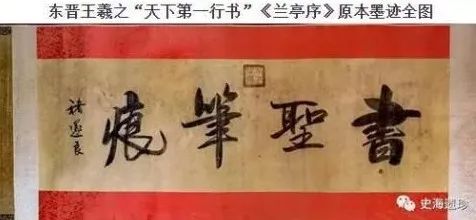 东晋王羲之“天下第一行书”《兰亭序》原本墨迹全图
書聖筆痕
褚遂良
史海遗珍